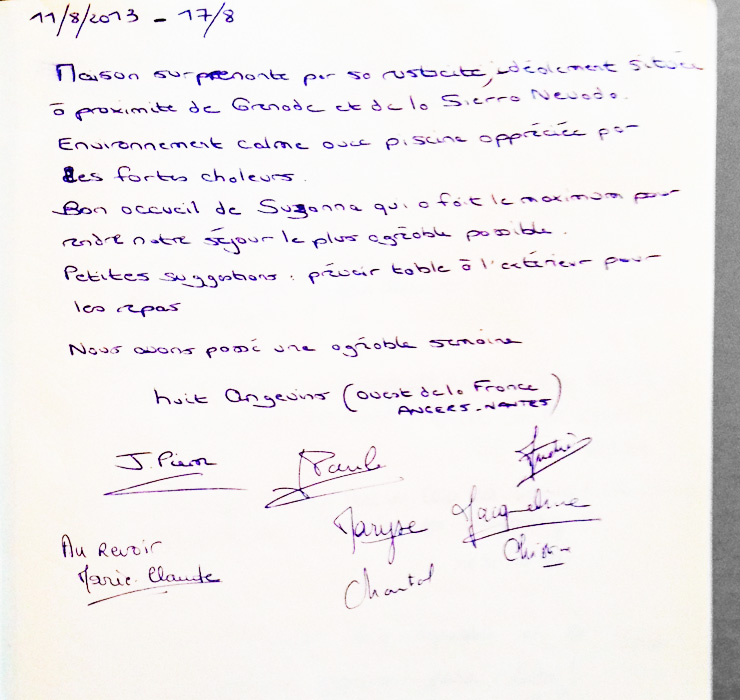 11/8/2013 - 17/8
Maison surprenante par sa rusticité, idéalement située
à proximité de Grenade et de la Sierra Nevada.
Environnement calme avec piscine appréciée par
les fortes chaleurs.
Bon accueil de Suzanna qui a fait le maximum pour
rendre notre séjour le plus agréable possible.
Petites suggestions : prévoir table à l'extérieur pour
les repas
Nous avons passé une agréable semaine
huit Angevins (ouest de la France
ANGERS-NANTES)
J. Pierre Paule
Maryse Jacqueline
Au Revoir
Marie-Claude
Chantal